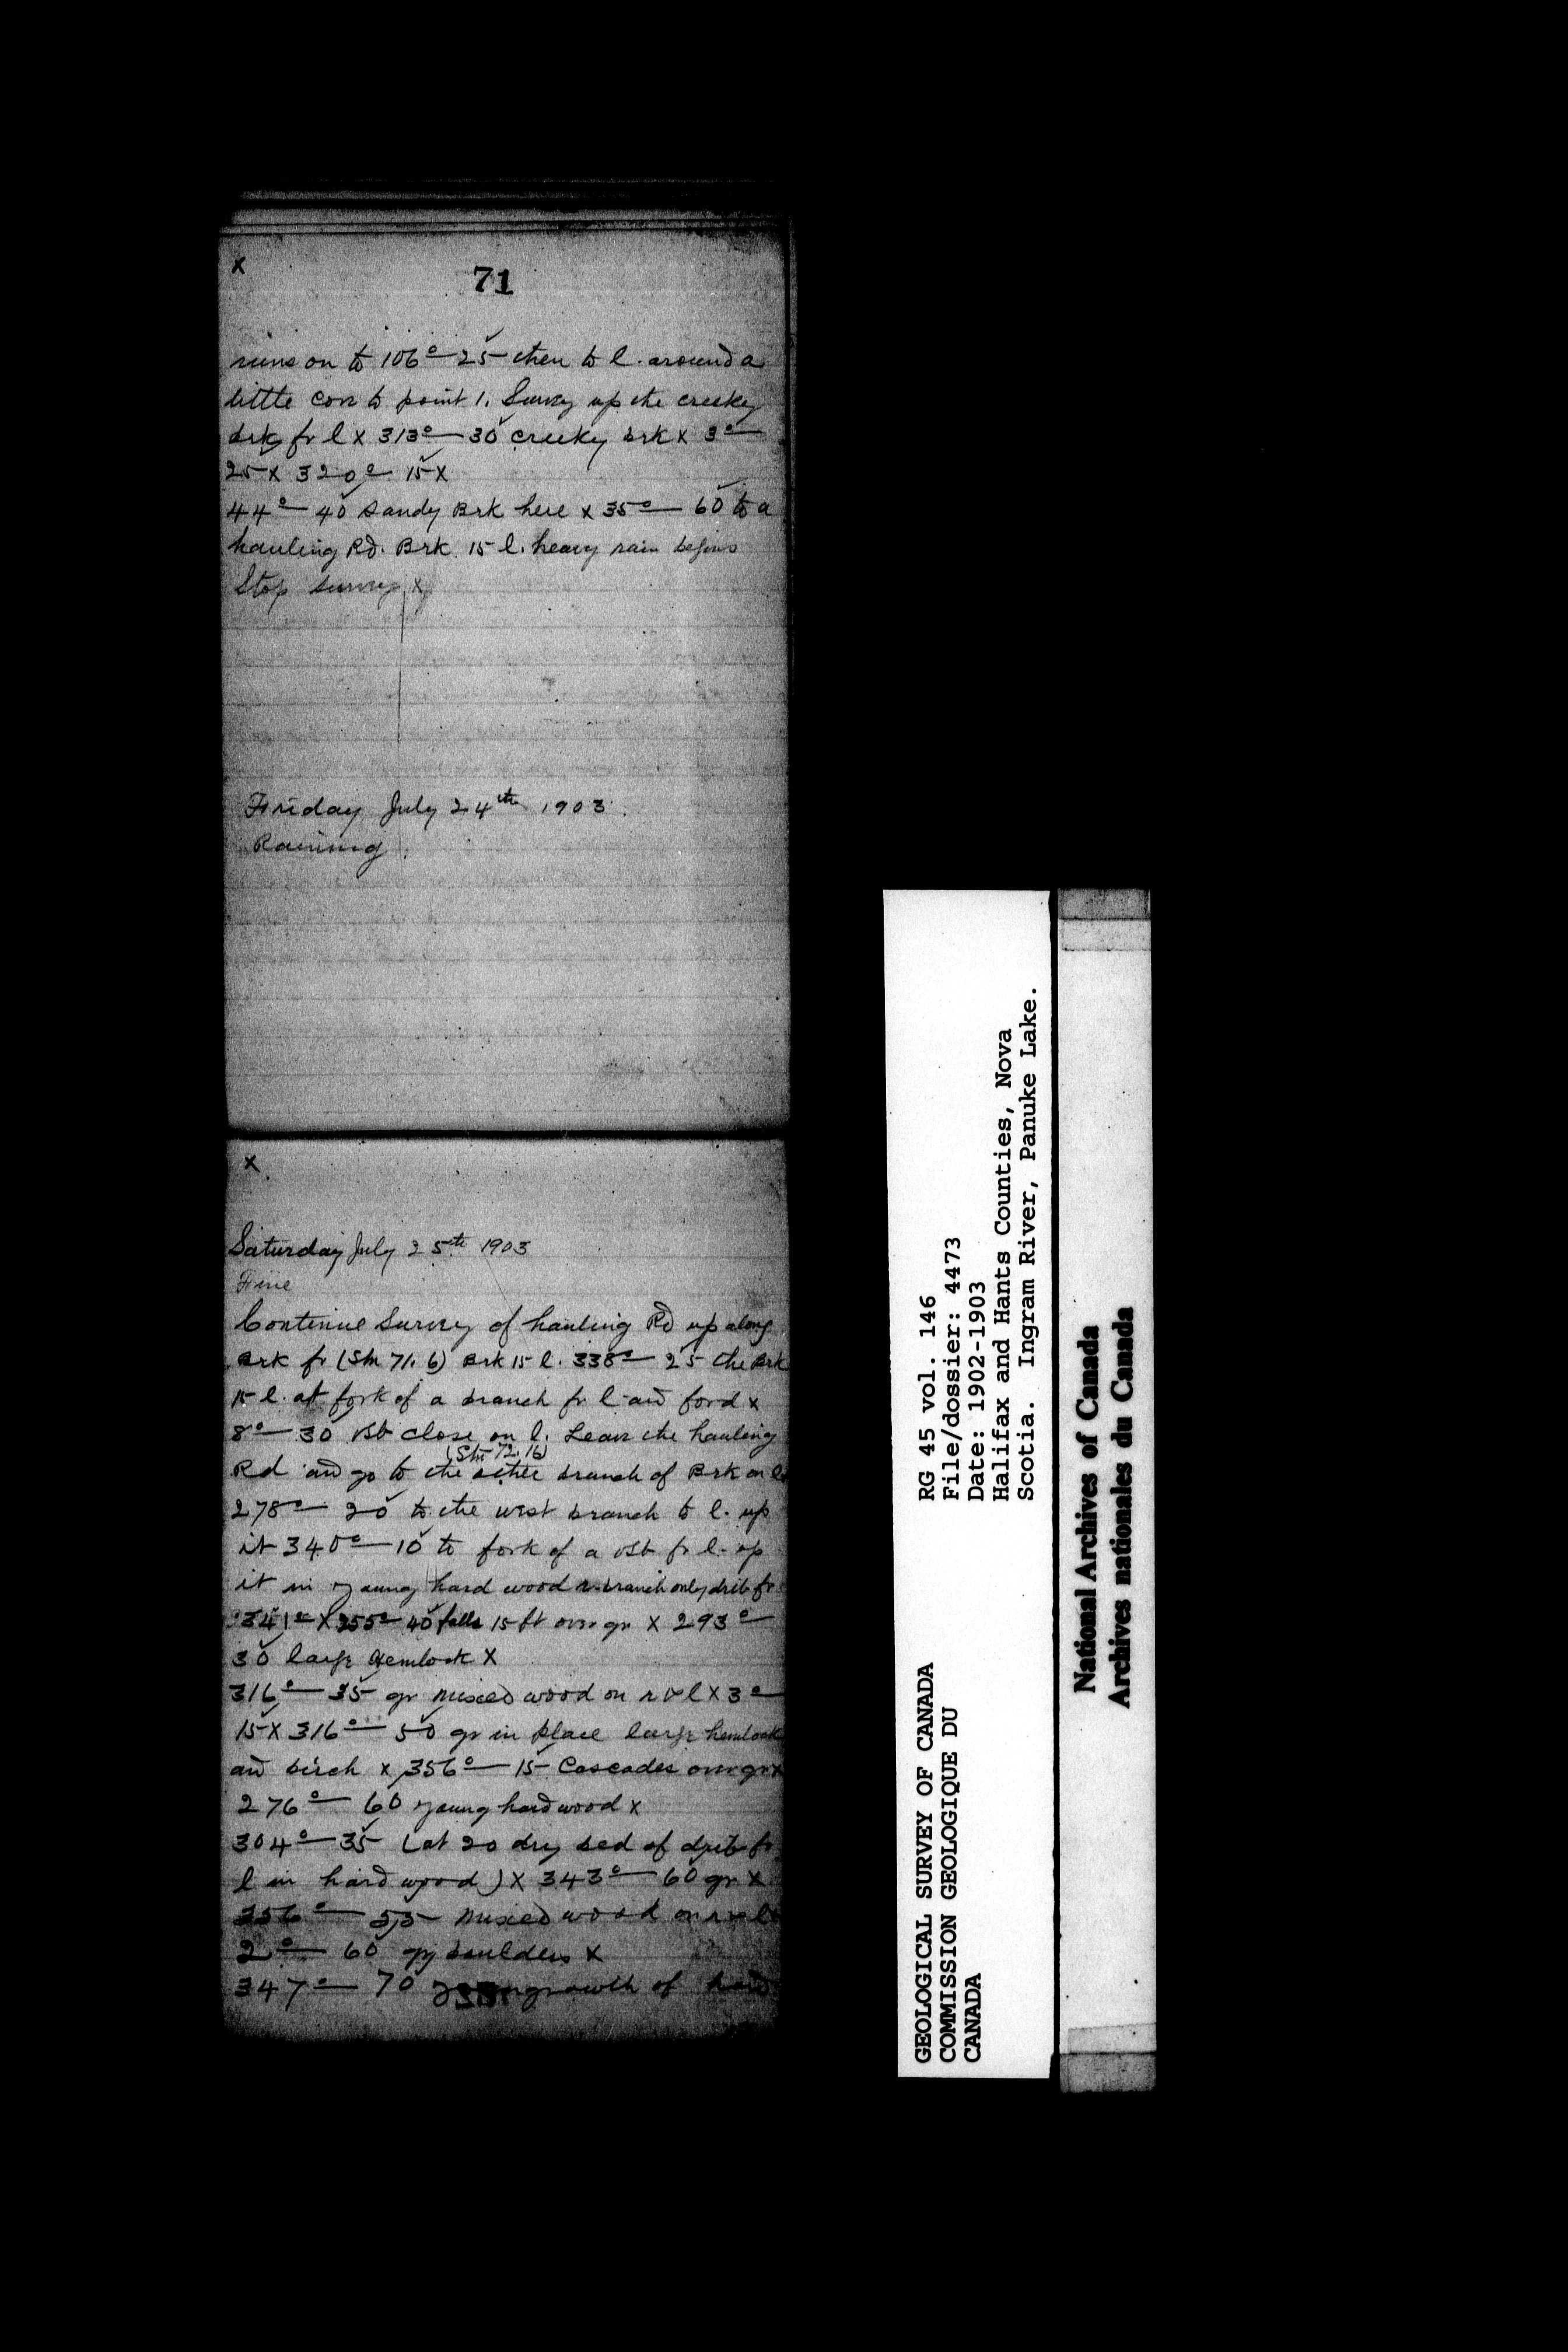 x
71
runs on to 106° — 25 then to l. around a
little cove to point 1. Survey up the creeky
brk fr l x 313° — 30 creeky brk x 3° —
25 x 320° 15 x
44° — 40 Sandy Brk here x 35° — 60 to a
hauling Rd. Brk 15 l. heavy rain begins
Stop survey x
Friday July 24th 1903.
Raining.
x
Saturday July 25th 1903
Fine
Continue Survey of hauling Rd up along
Brk fr (Stn 71. 6) Brk 15 l. 338° — 25 the Brk
15 l. at fork of a branch fr l and ford x
8° — 30 close on l. Leave the hauling
(Stn 72. 16)
Rd and go to the other branch of Brk on l.
278° — 20 to the west branch to l. up
it 340° — 10 to fork of a fr l. up
it in young hard wood r. branch only drib fr
341° x 255° 40 falls 15 ft over gr x 293° —
30 large Hemlock x
316° — 35 gr mixed wood on r & l x 3° —
15 x 316° — 50 gr in place large hemlock
and birch x 356° — 15 Cascades over gr x
276° — 60 young hard wood x
304° — 35 (at 20 dry bed of drib fr
l in hard wood) x 343° — 60 gr x
356° — 55 mixed wood on r & l
2° — 60 gr boulders x
347° — 70 growth of hard
GEOLOGICAL SURVEY OF CANADA
COMMISSION GEOLOGIQUE DU
CANADA
RG 45 vol. 146
File/dossier: 4473
Date: 1902-1903
Halifax and Hants Counties, Nova
Scotia. Ingram River, Panuke Lake.
National Archives of Canada
Archives nationales du Canada